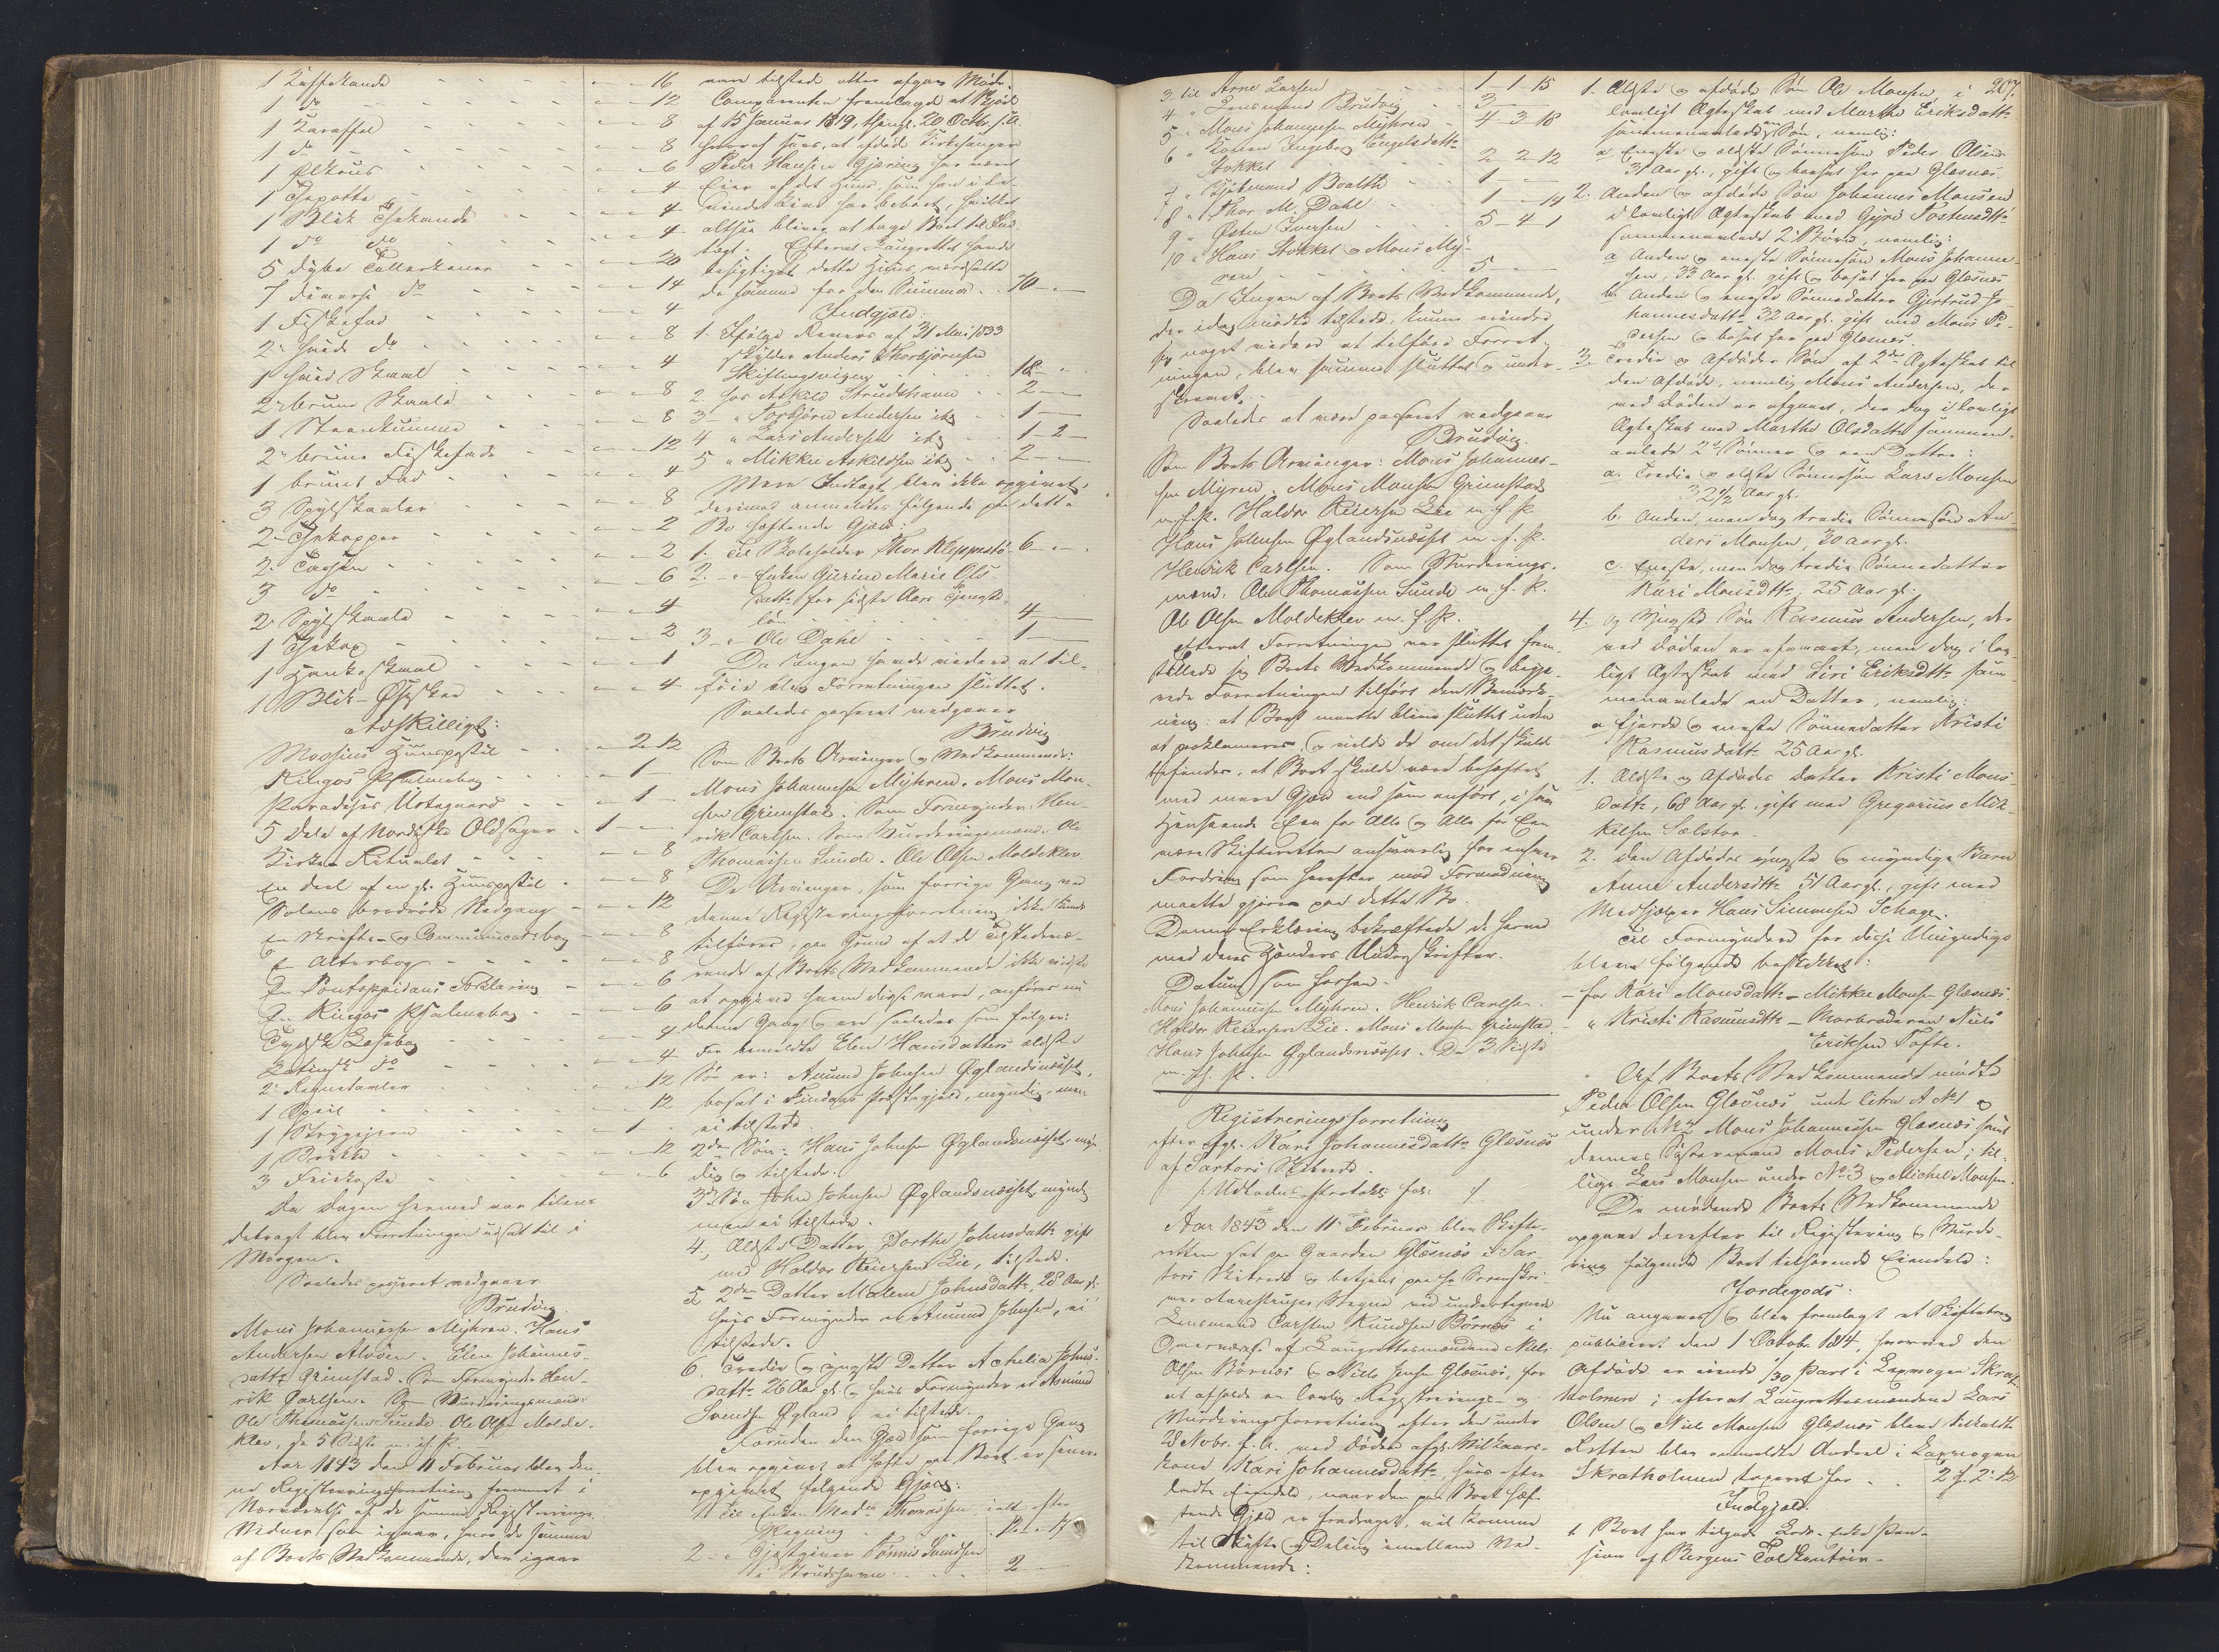 1 Kaffekande - - - 16
1 do - - - 12
1 Karaffel - - - 8
1 do - - - 8
1 Ølkrus - - - 6
1 Thepotte - - - 4
1 Blik Thekande - - - 4
1 do do - - - 4
5 dybe Tallerkener - - - 20
7 do - - - 14
1 Fiskefad - - - 4
2 hvide do - - - 8
1 hvid Skaal - - - 4
2 brune Skaale - - - 8
1 Steenkumme - - - 8
2 brune Fiskefade - - - 12
1 bruunt Fad - - - 4
3 Spølskaaler - - - 8
2 Thekopper - - - 2
2 Tasser - - - 2
3 do - - - 6
2 Spølskaale - - - 4
1 Thekop - - - 2
1 Hankeskaal - - - 1
1 Blik-Øsekar - - - 4
Adskilligt:
Huuspostil - - 2 12
Kingos Psalmebog - - 1 -
Paradisets Urtegaard - - 1 -
5 Dele af Nordiske Oldsager - 1 -
Kirke-Ritualet - - - 8
En Deel af en gl. Huuspostil - 8
Solens Nedgang - - 12
En Skrifte- og Communionsbog - 8
En Alterbog - - - 8
En Pontoppidans Forklaring - 6
En Kingos Psalmebog - - 6
Tydsk Læsebog - - - 4
Latinsk do - - - 4
2 Regnetavler - - - 12
1 Speil - - - 12
1 Strygejern - - - 1 -
1 - - - 12
3 - - - 6
Da Dagen hermed var tilen-
debragt blev Forretningen udsat til i
Morgen.
Saaledes passeret vedgaaer
Brudvig.
Mons Johannessen Myhren. Hans
Andersen Alvøen. Elen Johannes-
datter Grimstad. Som Formynder Hen-
rik Carlsen. Som Vurderingsmænd:
Ole Thomassen Sunde. Ole Olsen Molde-
klev, de 5 Sidste m. f. P.
Aar 1843 den 11 Februar blev den-
ne Registreringsforretning fremmet i
Nærværelse af de samme Registrerings-
Vidner som igaar, hvor de samme
af Boets Vedkommende, der igaar
vare tilstede atter afgav Møde.
Comparenten fremlagde et Skjøde
af 15 Januar 1819, thingl. 20 Octbr. s. A.
hvoraf sees, at afdøde Kirkesanger
Peder Hansen Gjæring har været
Eier af det Huus, som han i le-
vende Live har beboet, hvilket
altsaa bliver at tage Boet til Ind-
tægt. Efterat Laugrettet havde
besigtiget dette Huus, værdsatte
de samme for den Summa - 70 - -
Indgjæld.
1. Ifølge Revers af 31 Mai 1833
skylder Anders Thorbjørnsen
Skiftingsvigen - - 18 - -
2 hos Askild Strudshavn - 2 - -
3 " Torbjørn Andersen ibd - 1 - -
4 " Lars Andersen ibd - 1 - 2 -
5 " Mikkel Askildsen ibd - 2 - -
Mere Indtægt blev ikke opgivet,
derimod anmeldtes følgende paa dette
Bo heftende Gjæld:
1. Til Boleholder Thor Kleppestø - 6 - -
2. - " Enken Gurine Marie Ols-
datter for sidste Aars Tjeneste-
løn - - 4 - -
3 - " Ole Dahl - - 1 - -
Da Ingen havde videre at til-
føie blev Forretningen sluttet.
Saaledes passeret vedgaaer
Brudvig
Som Boets Arvinger og Vedkommende:
Mons Johannessen Myhren. Mons Mon-
sen Grimstad. Som Formynder: Hen-
rik Carlsen. Som Vurderingsmænd: Ole
Thomassen Sunde. Ole Olsen Moldeklev
De Arvinger, som forrige Gang ved
denne Registreringsforretning ikke kunde
tilføres, paa Grund af at de Tilstedevæ-
rende af Boets Vedkommende ikke vidste
at opgive hvem disse vare, anføres nu
denne Gang og ere saaledes som følger:
Før bemeldte Elen Hansdatters ældste
Søn er: Amund Johnsen Øglandsnæsset,
bosat i Findaas Præstegjæld, myndig, men
ei tilstede.
2den Søn: Hans Johnsen Øglandsnæsset, myn-
dig og tilstede.
3die Søn John Johnsen Øglandsnæsset, myndig
men ei tilstede.
4., Ældste Datter Dorthe Johnsdatter gift
med Haldor Reiersen Lie, tilstede.
5 2den Datter Malene Johnsdatter, 28 Aar gl.
hvis Formynder er Amund Johnsen, ei
tilstede.
6. Tredie og yngste Datter Achelia Johns-
datter 26 Aar gl. og hvis Formynder er Amund
Svendsen Øgland, ei tilstede.
Foruden den Gjæld som forrige Gang
blev opgivet at hefte paa Boet, er senere
opgivet følgende Gjæld:
1 Til Enken Mad. Thomassen ialt efter
Regning - - 12 - 17
2 - " Gjæstgiver Tønnis Svendsen
i Strudshavn - - 2 - -
3 til Arne Larsen - 1 - 1 - 15
4 " Lensmand Brudvig - 3 - -
5 " Mons Johannessen Myhren - 4 - 3 - 18
6 " Konen Ingeborg Engelsdatter
Stokket - 2 - 2 - 12
7 " Boalth - 1 - -
8 " Thor M. Dahl - 1 - 14
9 " Østen Iversen - 5 - 4 - 1
10 " Hans Stokket og Mons Myh-
ren - - 5 - -
Da Ingen af Boets Vedkommende,
der idag mødte tilstede, kunne erindre
sig noget videre at tilføre Forret-
ningen, blev samme sluttet og under-
skrevet.
Saaledes at være passeret vedgaaer
Brudvig.
Som Boets Arvinger: Mons Johannes-
sen Myren. Mons Monsen Grimstad
m. f. P. Haldor Reiersen Lie m. f. P.
Hans Johnsen Øglandsnæsset m. f. P.
Henrik Carlsen. Som Vurderings-
mænd: Ole Thomassen Sunde m. f. P.
Ole Olsen Moldeklev m. f. P.
Efterat Forretningen var sluttet frem-
stillede sig Boets Vedkommende og begjæ-
rede Forretningen tilført den Bemærk-
ning: at Boet maatte blive sluttet uden
at proklameres, og vilde de om det skulde
befindes, at Boet skulde være behæftet
med mere Gjæld end som anført, i saa
Henseende Een for Alle og Alle for Een
være Skifteretten ansvarlig for enhver
Fordring som herefter med Formodning
maatte gjøres paa dette Bo.
Denne Erklæring bekræftede de herved
med deres Hænders Underskrifter.
Datum som forhen.
Mons Johannessen Myhren. Henrik Carlsen.
Haldor Reiersen Lie. Mons Monsen Grimstad.
Hans Johnsen Øglandsnæsset. De 3 Sidste
m. f. P.
Registreringsforretning
efter afgl. Kari Johannesdatter Glæsnæs
af Sartors Skibrede.
Aar 1843 den 11 Februar blev Skifte-
retten sat paa Gaarden Glesnæs i Sar-
tors Skibrede og betjent paa Hr Sorenskri-
ver Aarestrups Vegne ved undertegnede
Lensmand Carsten Knudsen Børnæs i
Overvær af Laugrettesmændene Niels
Olsen Børnæs og Niels Jensen Glæsnæs, for
at afholde en lovlig Registrerings- og
Vurderingsforretning efter den under
28 Novbr. f. A. ved Døden afg. Vilkaars-
kone Kari Johannesdatter, hvis efter-
ladte Eiendele, naar den paa Boet hef-
tende Gjæld er fradraget, vil komme
til Skifte og Deling imellem Ved-
kommende:
207.
1. Ældste og afdøde Søn Ole Monsen, i
lovligt Ægteskab med Marthe Eriksdatter
sammenavlede en Søn, nemlig:
a Eneste og ældste Sønnesøn Peder Olsen
31 Aar gl., gift og bosat her paa Glæsnæs.
2. Anden og afdøde Søn Johannes Monsen
i lovligt Ægteskab med Gjøri Tostensdtr
sammenavlede 2 Børn, nemlig:
a Anden og eneste Sønnesøn Mons Johannes-
sen, 33 Aar gl. gift og bosat her paa Glæsnæs
b. Anden og eneste Sønnedatter Gjertrud Jo-
hannesdatter 32 Aar gl. gift med Mons Pe-
dersen og bosat her paa Glæsnæs.
3. Tredie og Afdødes Søn af 2det Ægteskab til
den Afdøde, nemlig Mons Andersen, der
ved Døden er afgaaet, der dog i lovligt
Ægteskab med Marthe Olsdatter sammen-
avlede 2de Sønner og een Datter:
a. Tredie og ældste Sønnesøn Lars Monsen
32 1/2 Aar gl.
b. Anden, men dog tredie Sønnesøn An-
ders Monsen, 30 Aar gl.
c. Eneste, men dog tredie Sønnedatter
Kari Monsdtr, 25 Aar gl.
4. Og yngste Søn Rasmus Andersen, der
ved Døden er afgaaet, men dog i lov-
ligt Ægteskab med Siri Eriksdtr sam-
menavlede en Datter, nemlig:
a Fjerde og eneste Sønnedatter Kristi
Rasmusdatter 25 Aar gl.
1. Ældste og Afdødes Datter Kristi Mons-
datter, 68 Aar gl., gift med Gregorius Mik-
kelsen Sælstøe.
2. Den Afdødes yngste og myndige Barn
Anne Andersdtr 51 Aar gl., gift med
Medhjælper Hans Simonsen Schage.
Til Formyndere for disse Umyndige
bleve følgende beskikket:
- for Kari Monsdatter - Mikkel Monsen Glæsnæs.
- " Kristi Rasmusdtr - Morbroderen Niels
Eriksen Tofte.
Af Boets Vedkommende mødte
Peder Olsen Glæsnæs under litra A No 1 og
under No 2 Mons Johannessen Glæsnæs samt
dennes Søstermand Mons Pedersen; til-
lige Lars Monsen under No 3 og Michel Monsen.
De mødende Boets Vedkommende
opgave derefter til Registrering og Vurde-
ring følgende Boet tilhørende Eiendele:
Jordegods:
Nu angaves og blev fremlagt et Skiftebrev
publiceret den 1 October 1814, hvorved den
Afdøde er eiende 1/30 Part i Laxevogen Skrat-
holmen; efterat Laugrettesmændene Lars
Olsen og Niel Monsen Glæsnæs bleve tilkaldte
Retten blev anmeldte Andeel i Laxevogen
Skratholmen taxeret for - 2 f 2 12
Indgjæld.
1 Boet har tilgode Lods-Enke Pen-
sion af Bergens Toldkontoir -